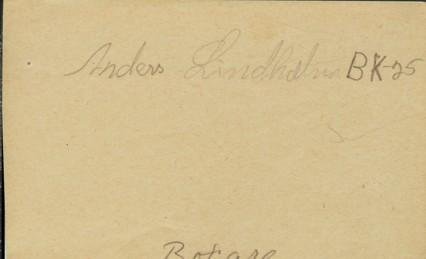 Anders Lindholm BK-25